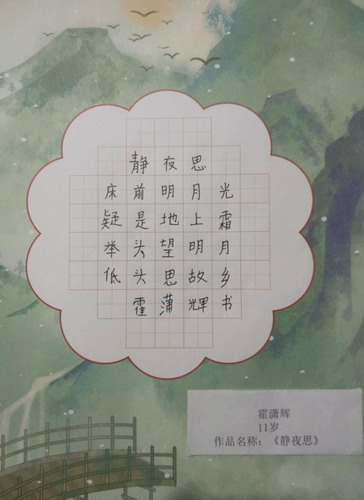 静夜思
床前明月光
疑是地上霜
举头望明月
低头思故乡
霍潇辉书
霍潇辉
11岁
作品名称：《静夜思》